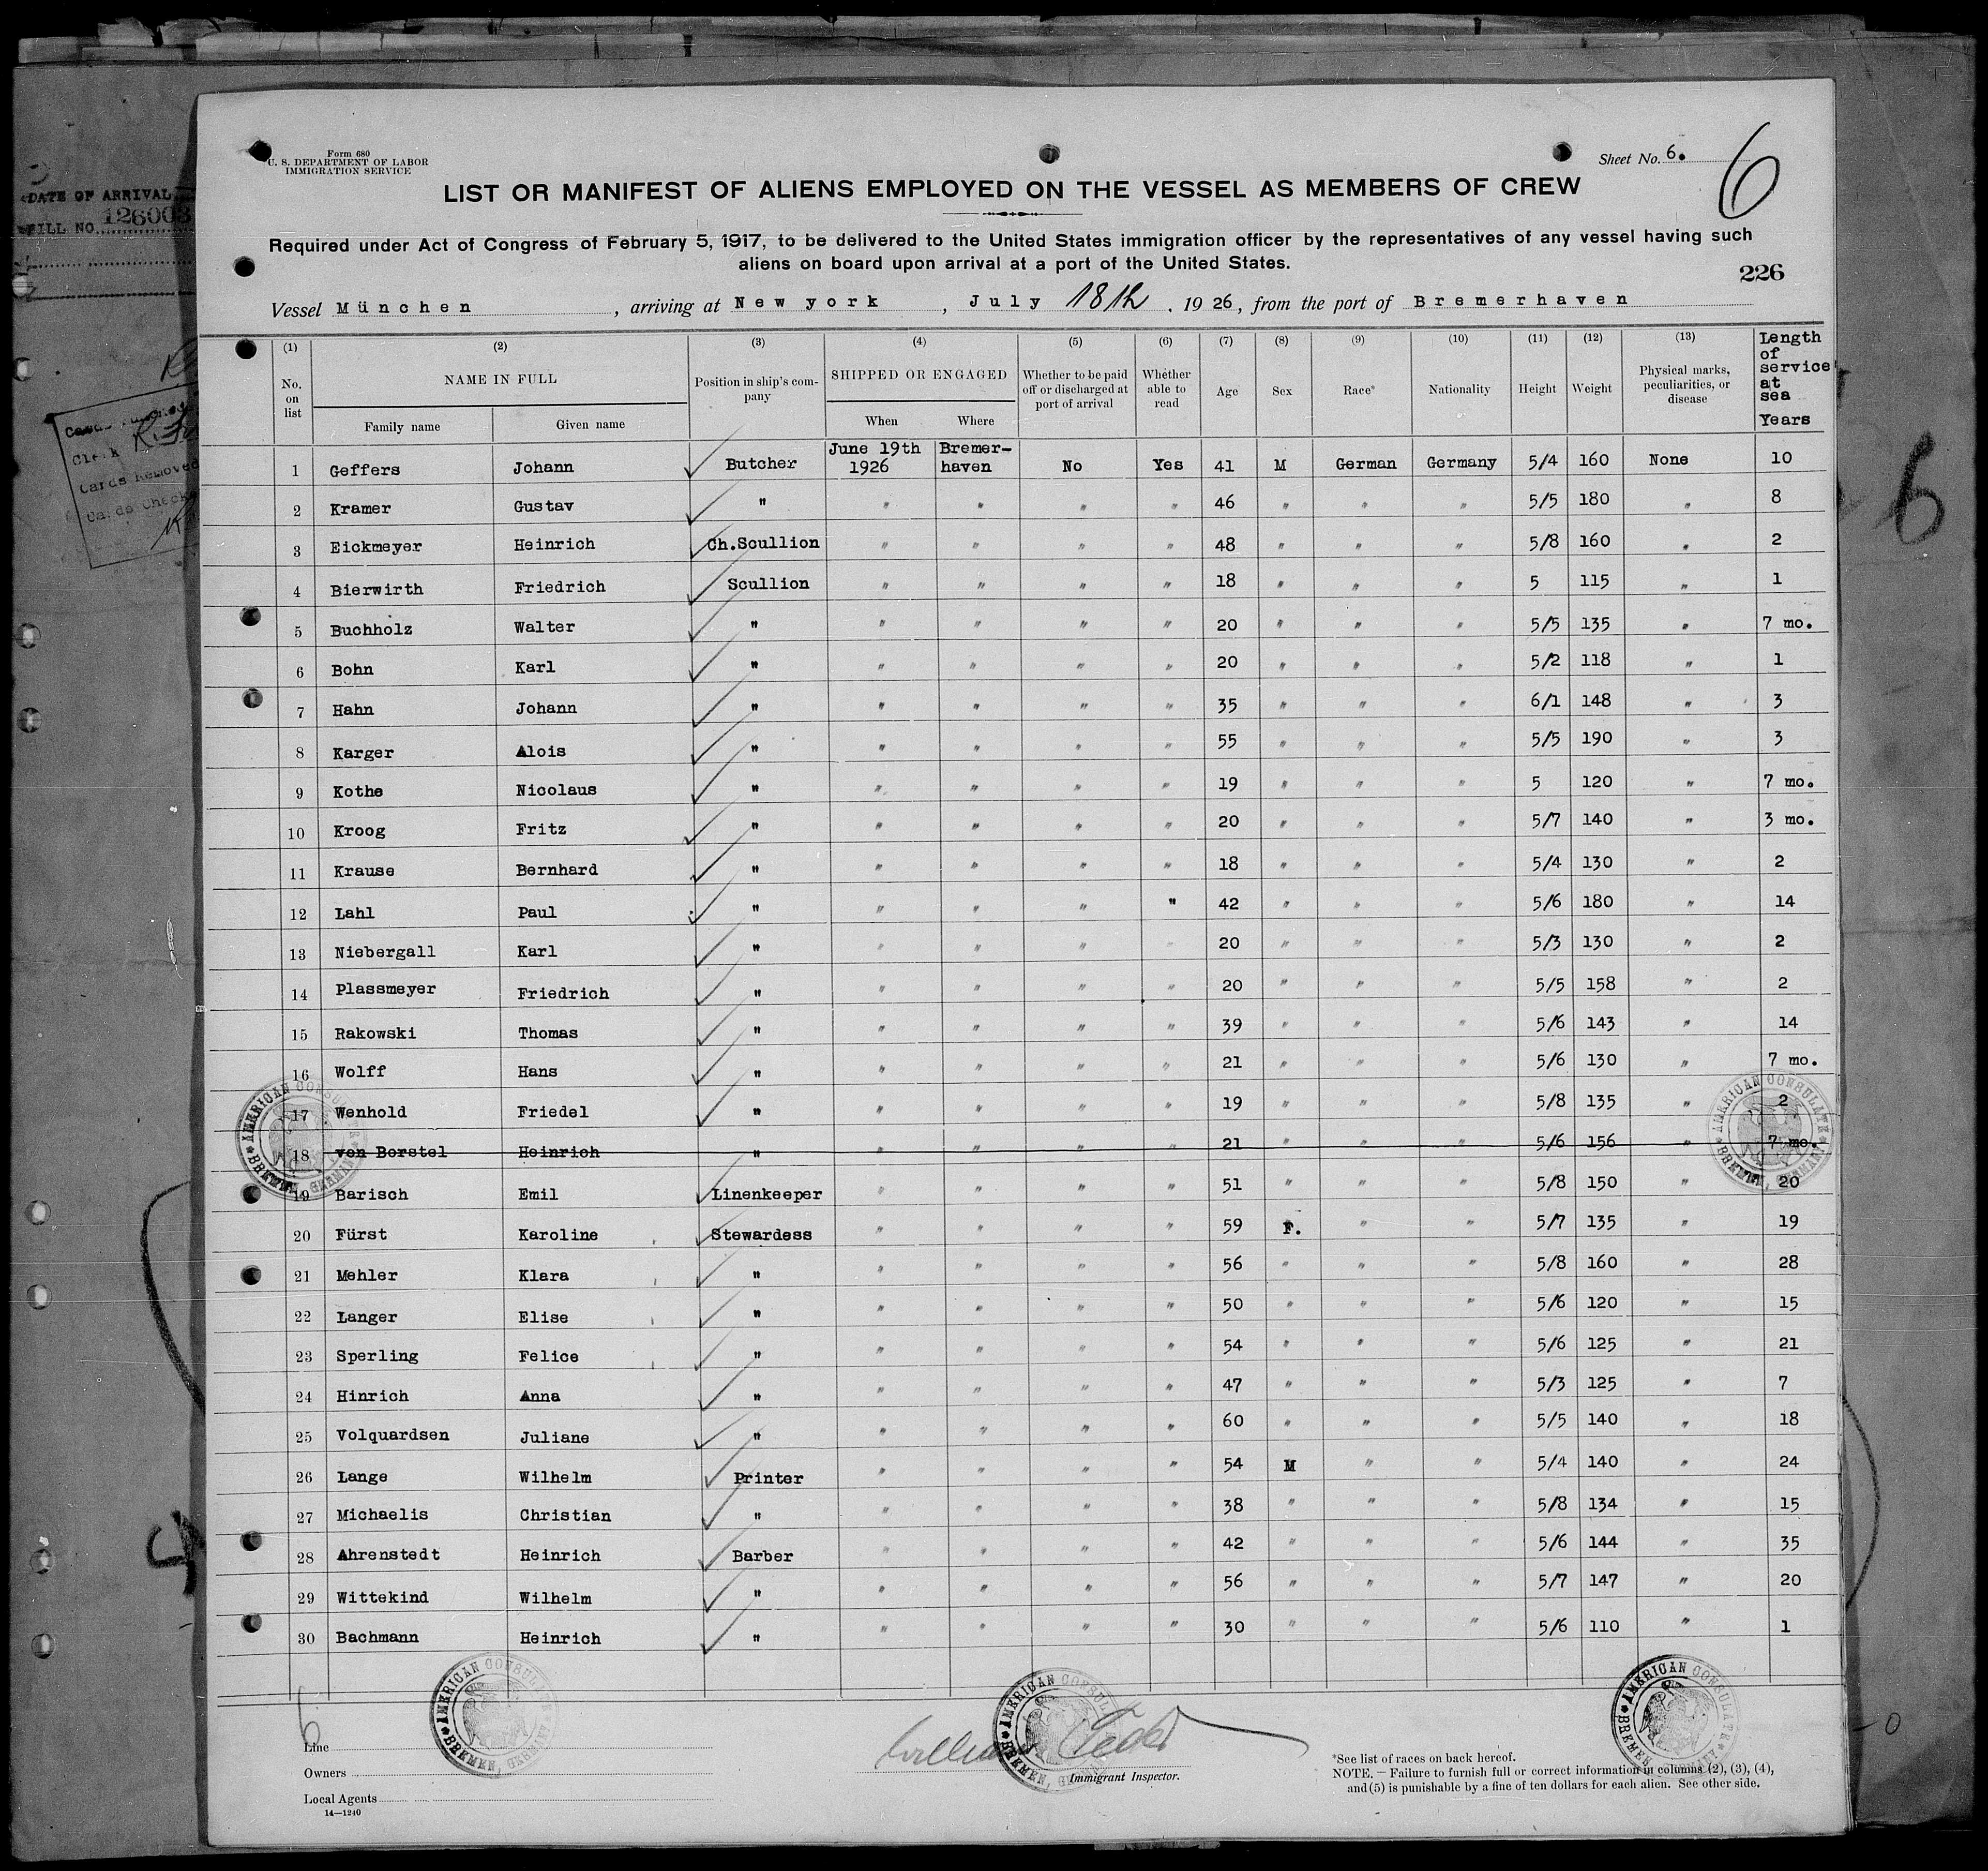 Form 680
U. S. DEPARTMENT OF LABOR
IMMIGRATION SERVICE
Sheet No. 6.
6
DATE OF ARRIVAL
126003
FILL NO.
LIST OR MANIFEST OF ALIENS EMPLOYED ON THE VESSEL AS MEMBERS OF CREW
Required under Act of Congress of February 5, 1917, to be delivered to the United States immigration officer by the representatives of any vessel having such
aliens on board upon arrival at a port of the United States.
226
Vessel München, arriving at New york, July 18th, 1926, from the port of Bremerhaven
(1) (2) (3) (4) (5) (6) (7) (8) (9) (10) (11) (12) (13) Length of service at sea Years
No. on list NAME IN FULL Position in ship's company SHIPPED OR ENGAGED Whether to be paid off or discharged at port of arrival Whether able to read Age Sex Race* Nationality Height Weight Physical marks, peculiarities, or disease
Family name Given name When Where
1 Geffers Johann Butcher June 19th 1926 Bremer-haven No Yes 41 M German Germany 5/4 160 None 10
2 Kramer Gustav " " " " " 46 " " " 5/5 180 " 8
3 Eickmeyer Heinrich Ch.Scullion " " " " 48 " " " 5/8 160 " 2
4 Bierwirth Friedrich Scullion " " " " 18 " " " 5 115 " 1
5 Buchholz Walter " " " " " 20 " " " 5/5 135 " 7 mo.
6 Bohn Karl " " " " " 20 " " " 5/2 118 " 1
7 Hahn Johann " " " " " 35 " " " 6/1 148 " 3
8 Karger Alois " " " " " 55 " " " 5/5 190 " 3
9 Kothe Nicolaus " " " " " 19 " " " 5 120 " 7 mo.
10 Kroog Fritz " " " " " 20 " " " 5/7 140 " 3 mo.
11 Krause Bernhard " " " " " 18 " " " 5/4 130 " 2
12 Lahl Paul " " " " " 42 " " " 5/6 180 " 14
13 Niebergall Karl " " " " " 20 " " " 5/3 130 " 2
14 Plassmeyer Friedrich " " " " " 20 " " " 5/5 158 " 2
15 Rakowski Thomas " " " " " 39 " " " 5/6 143 " 14
16 Wolff Hans " " " " " 21 " " " 5/6 130 " 7 mo.
17 Wenhold Friedel " " " " " 19 " " " 5/8 135 " 2
18 von Borstel Heinrich " " " " " 21 " " " 5/6 156 " 7 mo.
19 Barisch Emil Linenkeeper " " " " 51 " " " 5/8 150 " 20
20 Fürst Karoline Stewardess " " " " 59 F. " " 5/7 135 " 19
21 Mehler Klara " " " " " 56 " " " 5/8 160 " 28
22 Langer Elise " " " " " 50 " " " 5/6 120 " 15
23 Sperling Felice " " " " " 54 " " " 5/6 125 " 21
24 Hinrich Anna " " " " " 47 " " " 5/3 125 " 7
25 Volquardsen Juliane " " " " " 60 " " " 5/5 140 " 18
26 Lange Wilhelm Printer " " " " 54 M " " 5/4 140 " 24
27 Michaelis Christian " " " " " 38 " " " 5/8 134 " 15
28 Ahrenstedt Heinrich Barber " " " " 42 " " " 5/6 144 " 35
29 Wittekind Wilhelm " " " " " 56 " " " 5/7 147 " 20
30 Bachmann Heinrich " " " " " 30 " " " 5/6 110 " 1
AMERICAN CONSULATE BREMEN, GERMANY
AMERICAN CONSULATE BREMEN, GERMANY
AMERICAN CONSULATE BREMEN, GERMANY
AMERICAN CONSULATE BREMEN, GERMANY
AMERICAN CONSULATE BREMEN, GERMANY
6
Line
Owners
Local Agents
14—1240
Immigrant Inspector.
*See list of races on back hereof.
NOTE. — Failure to furnish full or correct information in columns (2), (3), (4),
and (5) is punishable by a fine of ten dollars for each alien. See other side.
Clerk
Cards Removed
Cards Check
6
4